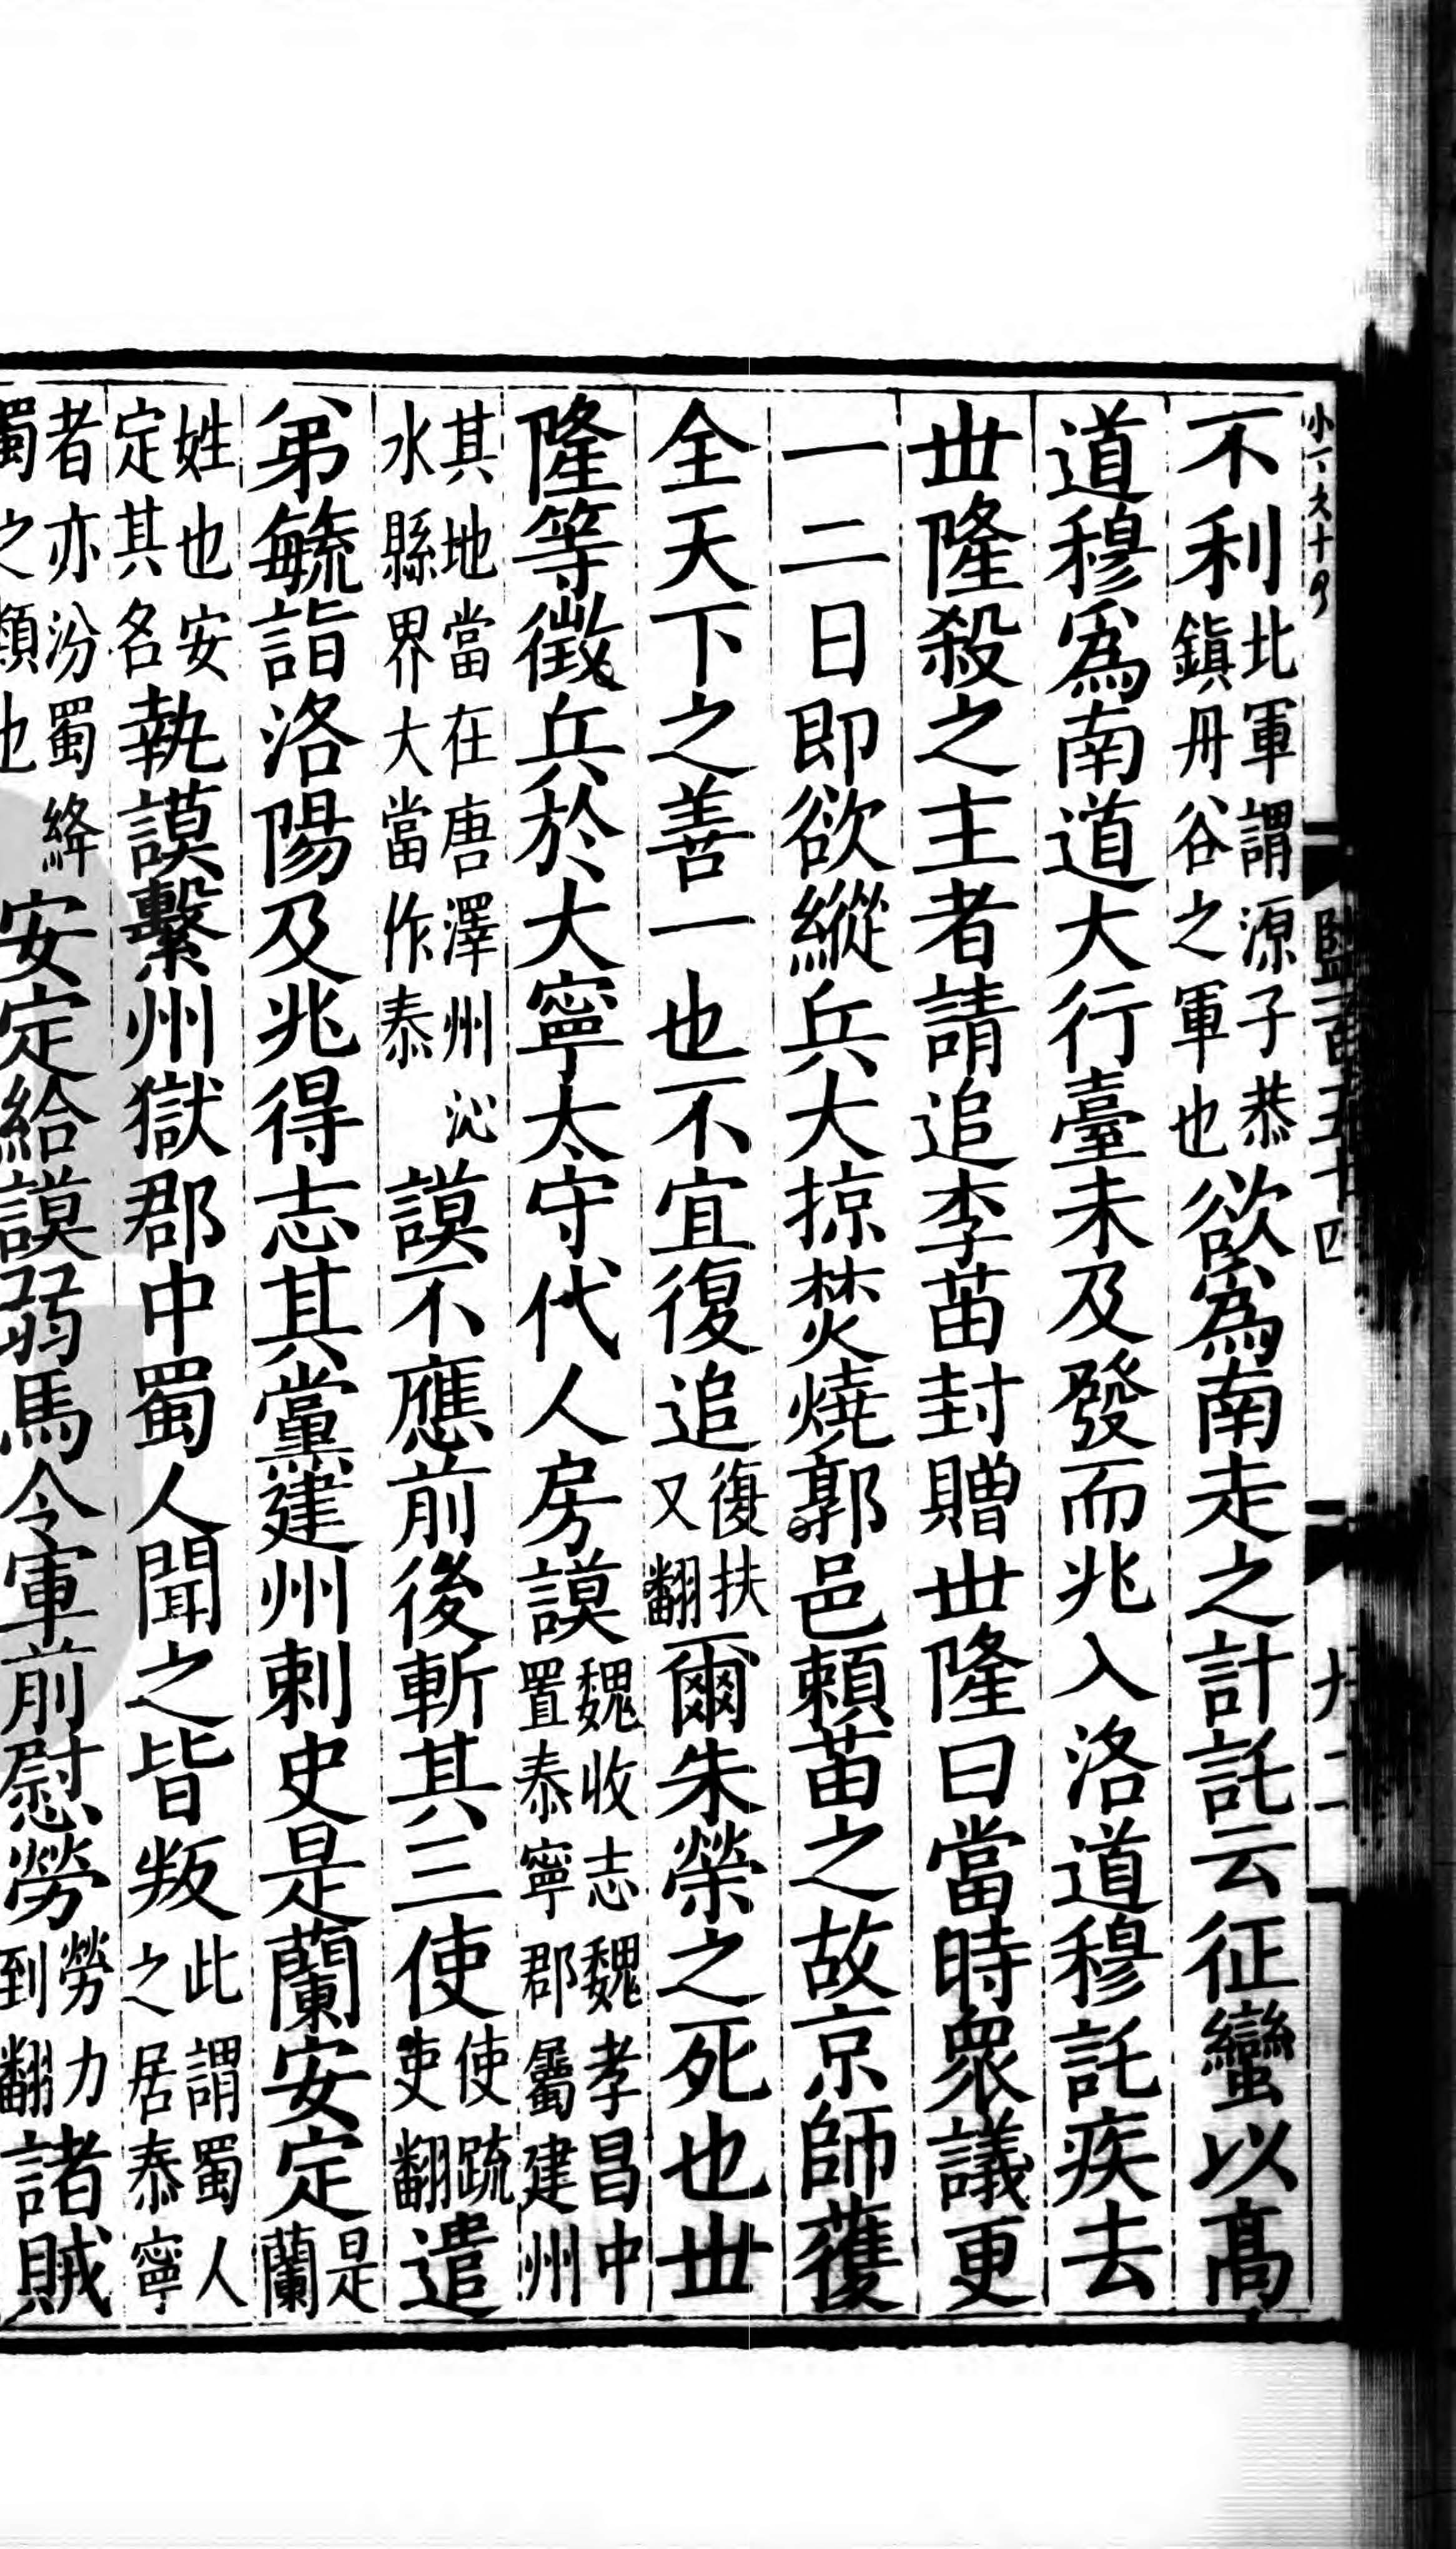 監一百五十四
不利北軍謂源子恭鎮丹谷之軍也欲爲南走之計託云征蠻以髙
道穆爲南道大行臺未及發而兆入洛道穆託疾去
丗隆殺之主者請追李苗封贈丗隆曰當時衆議更
一二日即欲縱兵大掠焚燒郭邑賴苗之故京師獲
全天下之善一也不宜復追復扶又翻爾朱榮之死也丗
隆等徵兵於大寧太守代人房謨魏收志魏孝昌中置泰寧郡屬建州
其地當在唐澤州沁水縣界大當作泰謨不應前後斬其三使使疏吏翻遣
弟毓詣洛陽及兆得志其黨建州刺史是蘭安定是蘭
姓也安定其名執謨繫州獄郡中蜀人聞之皆叛此謂蜀人之居泰寧
者亦汾蜀絳蜀之類也安定給謨弱馬令軍前慰勞勞力到翻諸賊